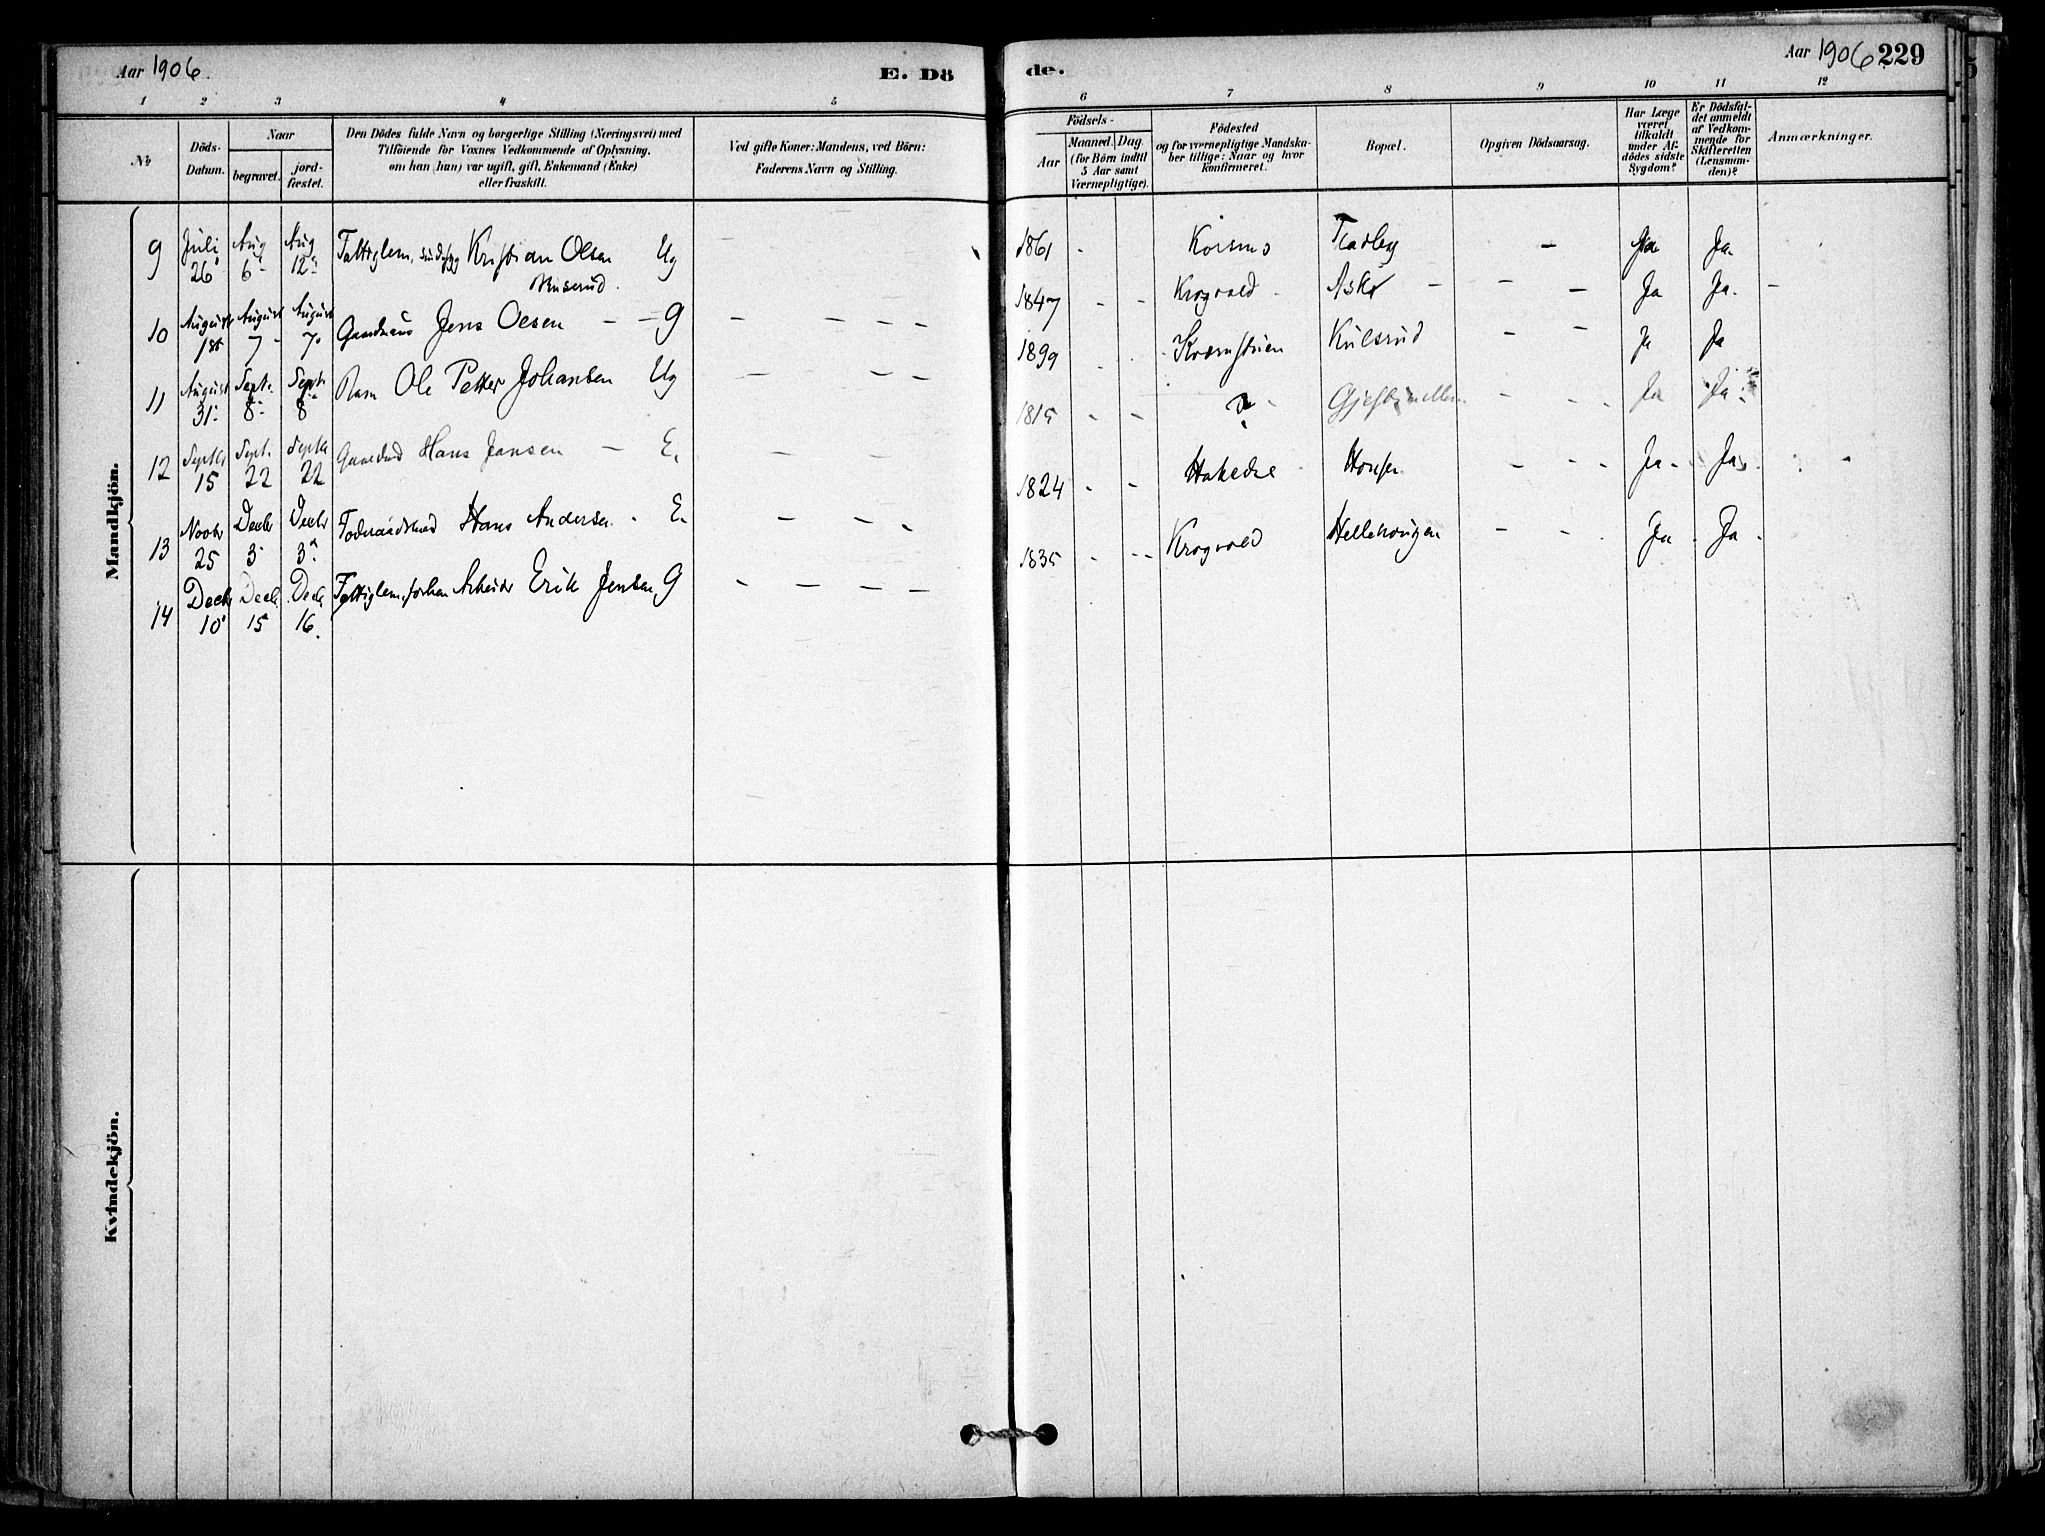 Aar 1906.
E. Dö
de.
Aar 1906 229
1 2 3 4 5
6 7 8 9 10 11 12
No
Döds-
Datum.
Naar
begravet.
jord-
fæstet.
Den Dödes fulde Navn og borgerlige Stilling (Næringsvei) med
Tilföiende for Voxnes Vedkommende af Oplysning,
om han (hun) var ugift, gift, Enkemand (Enke)
eller fraskilt.
Ved gifte Koner: Mandens, ved Börn:
Faderens Navn og Stilling.
Födsels-
Aar
Maaned. Dag.
(for Börn indtil
5 Aar samt
Værnepligtige).
Födested
og for værnepligtige Mandska-
ber tillige: Naar og hvor
konfirmeret.
Bopæl.
Opgiven Dödsaarsag.
Har Læge
været
tilkaldt
under Af-
dödes sidste
Sygdom?
Er Dödsfal-
det anmeldt
af Vedkom-
mende for
Skifteretten
(Lensman-
den)?
Anmærkninger.
Mandkjön.
9 Juli 26 Aug 6 Aug 12 Fattiglem, Kristian Olsen Ug
1861 - Korsmo - Ja Ja.
10 August 1st August 7 August 7. Gaardmand Jens Olsen - - G - - - -
1847 - - Krogvold - Ask - - - Ja Ja. -
11 August 31 Sept. 8 Sept. 8 Barn Ole Petter Johansen Ug - - -
1899 Kulsrud - - Ja Ja
12 Septbr 15 Sept. 22 Septbr 22 Gaardmd Hans Jansen - E. - - - -
1815 - - ? - - - Ja Ja.
13 Novbr 25 Decbr 3 Decbr 3. Föderaadsmand Hans Andersen. E. - - -
1824 - - - - - Ja - Ja.
14 Decbr 10 Decbr 15 Decbr 16. Fattiglem, forhen Arbeider Erik Jensen, G - - - -
1835 - - - Krogvold Hellehaugen - - Ja . Ja .
Kvindekjön.